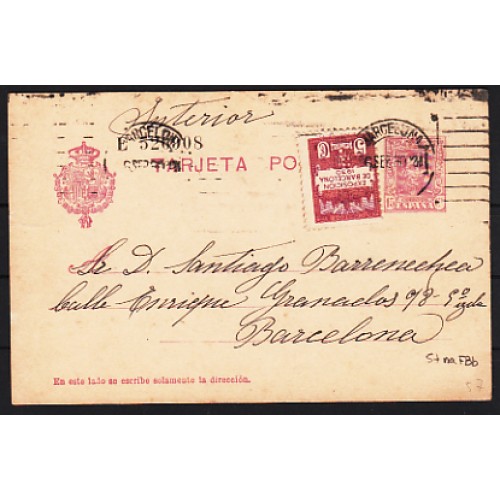 Interior
BARCELONA BARCELONA
E 526908
TARJETA PO
5 5
EXPOSICION
DE BARCELONA
1930
15 ESPAÑA
Sr. D. Santiago Barrenechea
Calle Enrique Granados 98-5º
Barcelona
En este lado se escribe solamente la dirección.
57